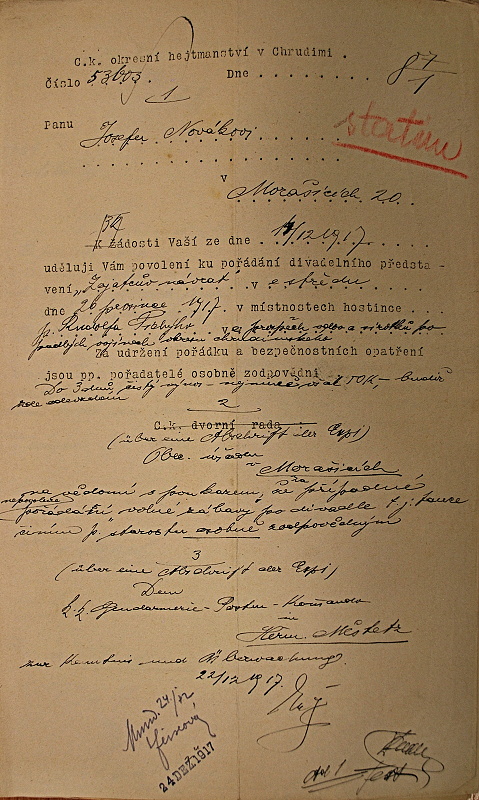 C.k. okresní hejtmanství v Chrudimi .
Číslo 53603. Dne . . . . . . . .
1
Panu
Josefu Novákovi
statim
v
Morašicích 20.
K žádosti Vaší ze dne 14/12 1917.
uděluji Vám povolení ku pořádání divadelního předsta -
vení „Zajatcův návrat" v středu
dne 26 prosince 1917. v místnostech hostince
p. Rudolfa ve prospěch vdov a sirotků po
padlých vojínech okresu chrudimského
Za udržení pořádku a bezpečnostních opatření
jsou pp. pořadatelé osobně zodpovědni
Do 3 dnů 50 K,-
2
C.k. dvorní rada
(über eine Abschrift der Expi)
Obec. úřadu
v Morašicích
na vědomí s poukazem, že za případné
nepovolené pořádání volné zábavy po divadle t. j. tance
činím p. starostu osobně zodpovědným
3
(über eine Abschrift der Expi)
Dem
k.k. Gendarmerie-Posten-Kommando
in
Herm. Městetz
zur Kenntnis und Überwachung.
22/12 1917.
Mund. 24/12
24 DEZ 1917